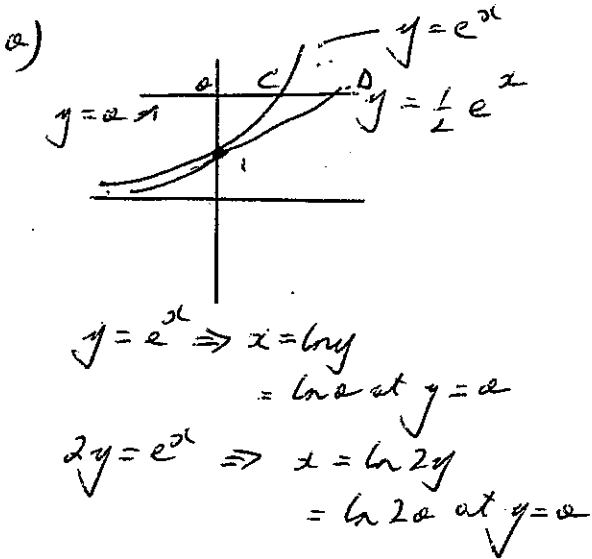 a)
y = e^x
a C D
y = a
y = 1/2 e^x
1
y = e^x ⇒ x = ln y
= ln a at y = a
2y = e^x ⇒ x = ln 2y
= ln 2a at y = a